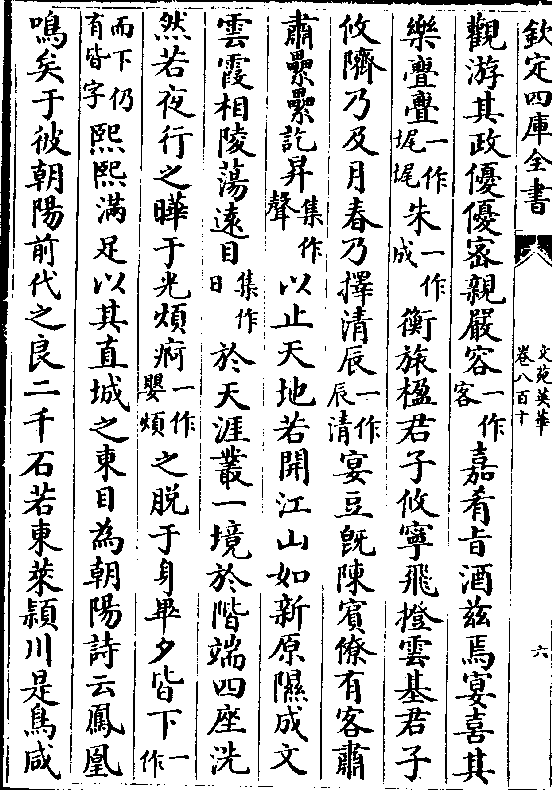 欽定四庫全書
文苑英華
卷八百十
六
觀游其政優優宻親嚴容一作客嘉肴旨酒兹焉宴喜其
樂亹亹一作娓娓朱一作成衡旅楹君子攸寧飛撜雲基君子
攸隮乃及月春乃擇清辰一作辰清宴豆旣陳賓僚有客肅
肅纍纍訖昇集作聲以止天地若開江山如新原隰成文
雲霞相陵蕩遠目集作日於天涯叢一境於階端四座洗
然若夜行之曄于光煩痾一作嬰煩之脱于身畢夕皆下一作
而下仍有皆字熙熙滿足以其直城之東目為朝陽詩云鳳凰
鳴矣于彼朝陽前代之良二千石若東萊潁川是鳥咸